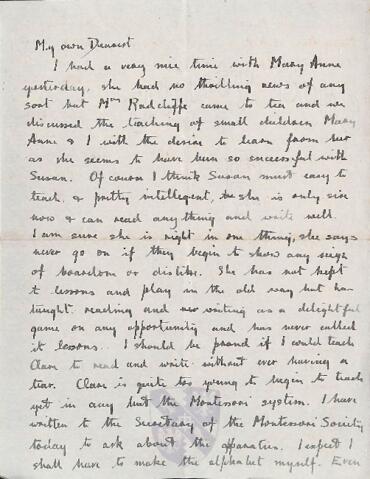 My own Dearest
I had a very nice time with Mary Anne
yesterday, she had no thrilling news of any
sort but Mrs Radcliffe came to tea and we
discussed the teaching of small children Mary
Anne & I with the desire to learn from her
as she seems to have been so successful with
Susan. Of course I think Susan must easy to
teach, & pretty intelligent, she is only six
now & can read anything and write well.
I am sure she is right in one thing, she says
never go on if they begin to show any sign
of boredom or dislike. She has not kept
to lessons and play in the old way but has
taught reading and now writing as a delightful
game on any opportunity and has never called
it lessons. I should be proud if I could teach
Clare to read and write without ever having a
tear. Clare is quite too young to begin to teach
yet in any but the Montessori system. I have
written to the Secretary of the Montessori Society
today to ask about the apparatus. I expect I
shall have to make the alphabet myself. Even